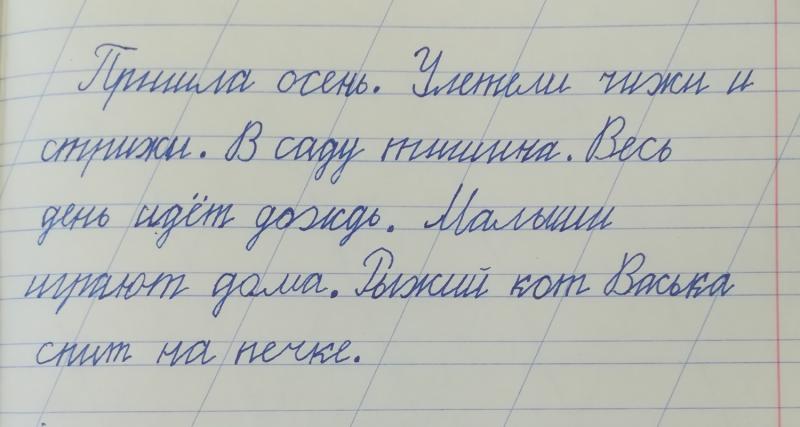 Пришла осень. Улетели чижи и
стрижи. В саду тишина. Весь
день идёт дождь. Малыши
играют дома. Рыжий кот Васька
спит на печке.